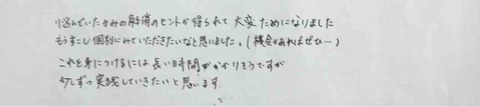 悩んでいたかみの解消のヒントが得られて大変ためになりました
もうすこし個別にみていただきたいなと思いました。(機会があればぜひ…)
これを身につけるには長い時間がかかりそうですが
少しずつ実践していきたいと思います。